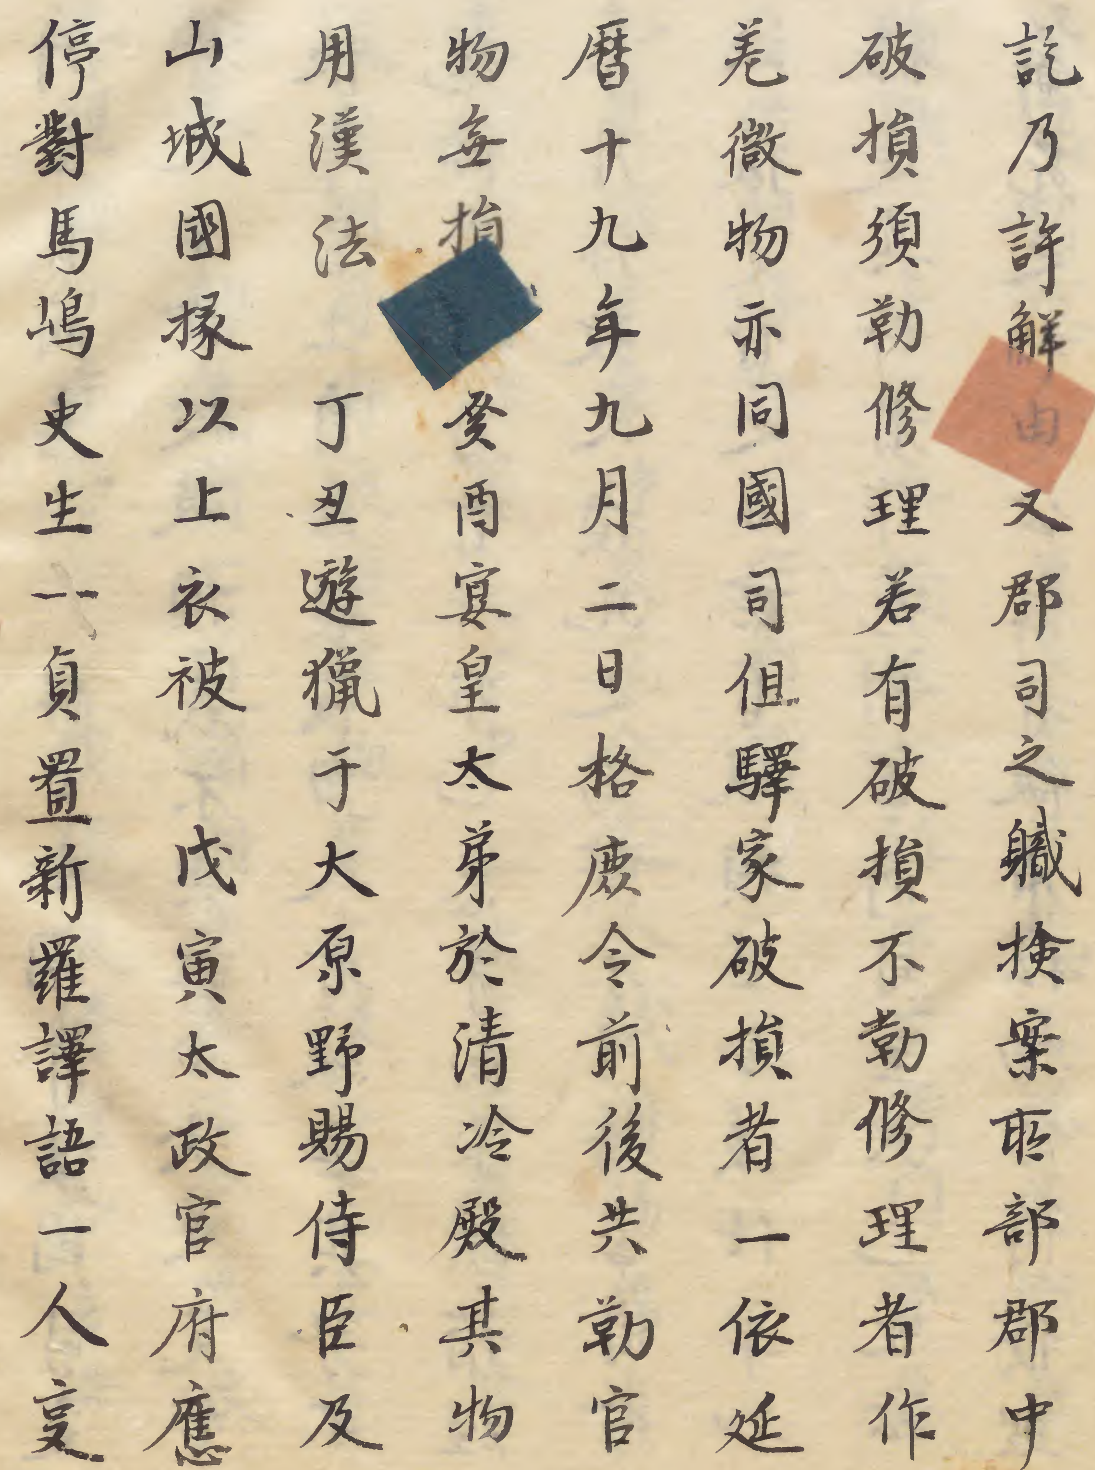 訖乃許解由又郡司之職検案所部郡中
破損須勒修理若有破損不勤修理者作
差徴物亦同國司但驛家破損者一依延
暦十九年九月二日格處令前後共勤官
物無損癸酉宴皇太弟於清冷殿其物
用漢法丁丑遊獵于大原野賜侍臣及
山城國掾以上衣被戊寅太政官府應
停對馬嶋史生一員置新羅譯語一人